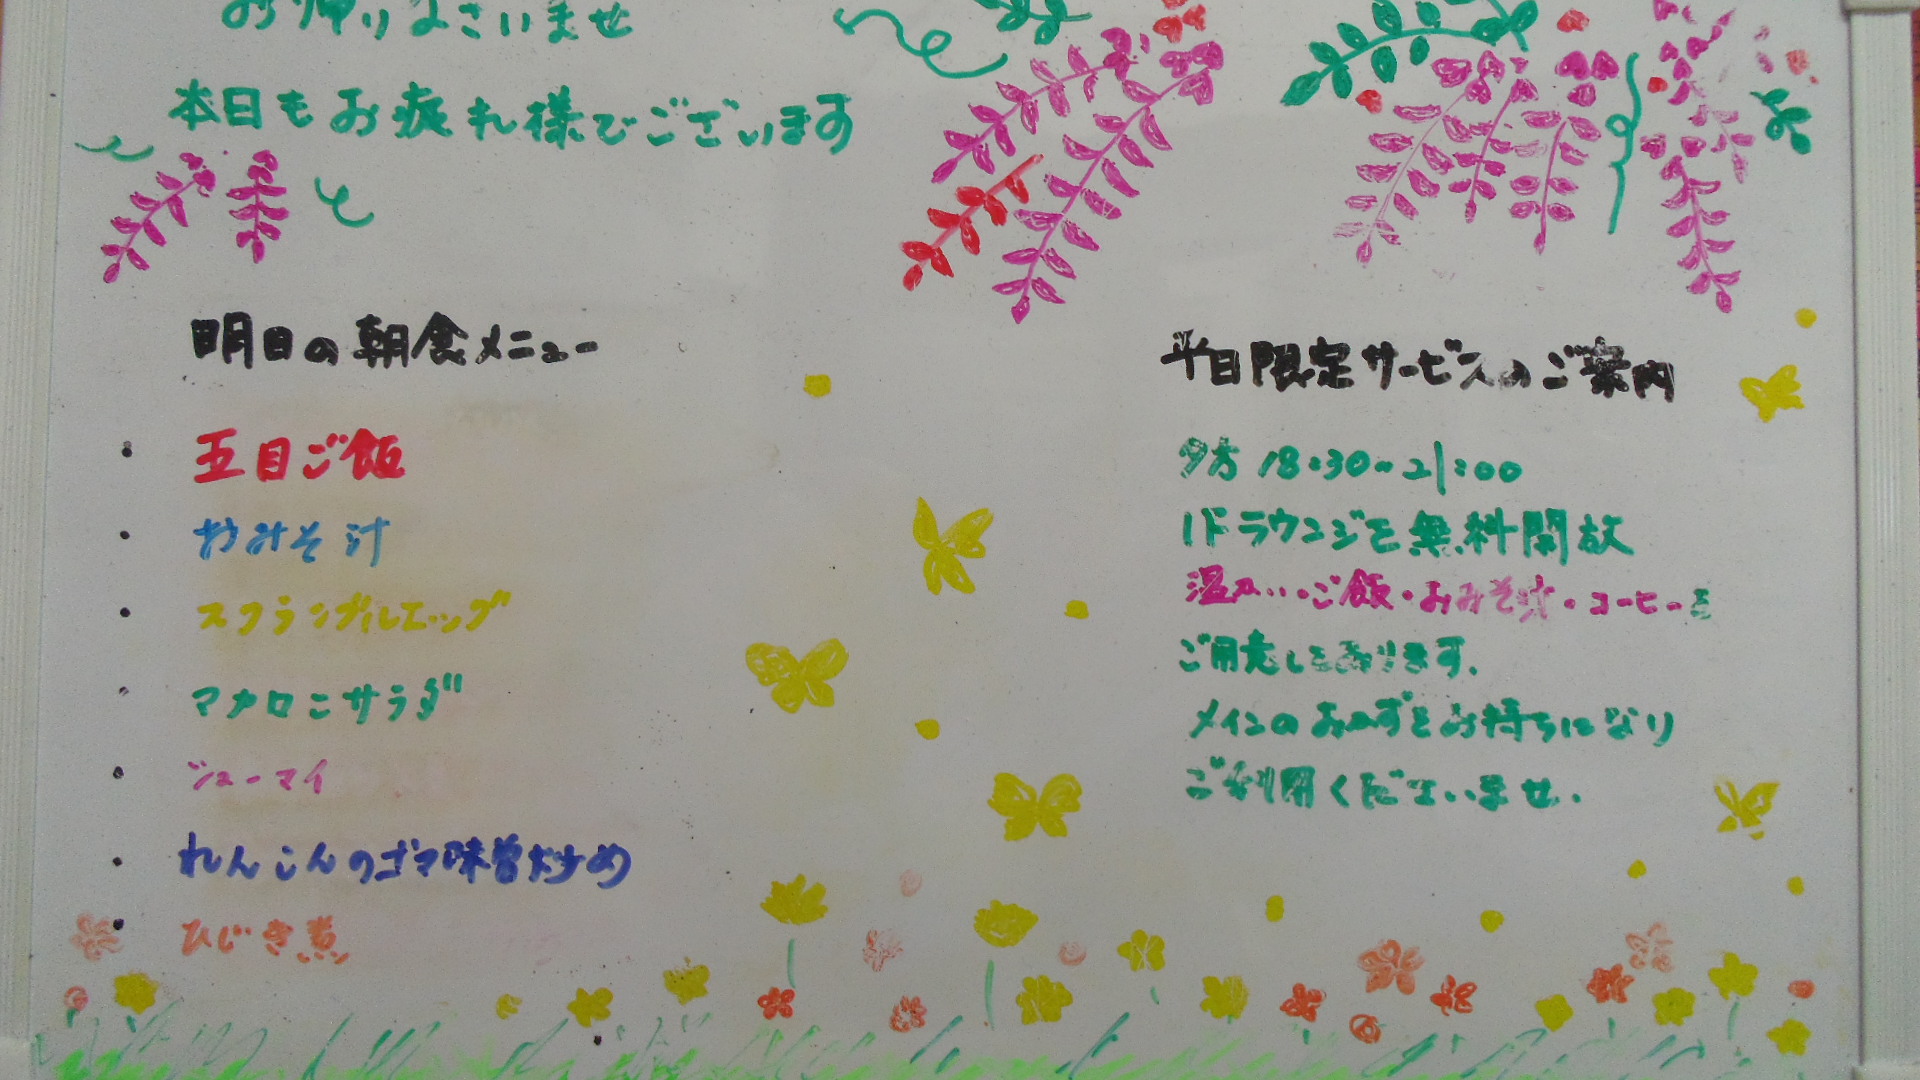 お帰りなさいませ
本日もお疲れ様でございます
明日の朝食メニュー
・五目ご飯
・おみそ汁
・スクランブルエッグ
・マカロニサラダ
・シューマイ
・れんこんのゴマ味噌炒め
・ひじき煮
平日限定サービスのご案内
夕方 18:30~21:00
1Fラウンジを無料開放
温かいご飯・おみそ汁・コーヒーを
ご用意しております。
メインのおかずをお持ちになり
ご利用くださいませ。